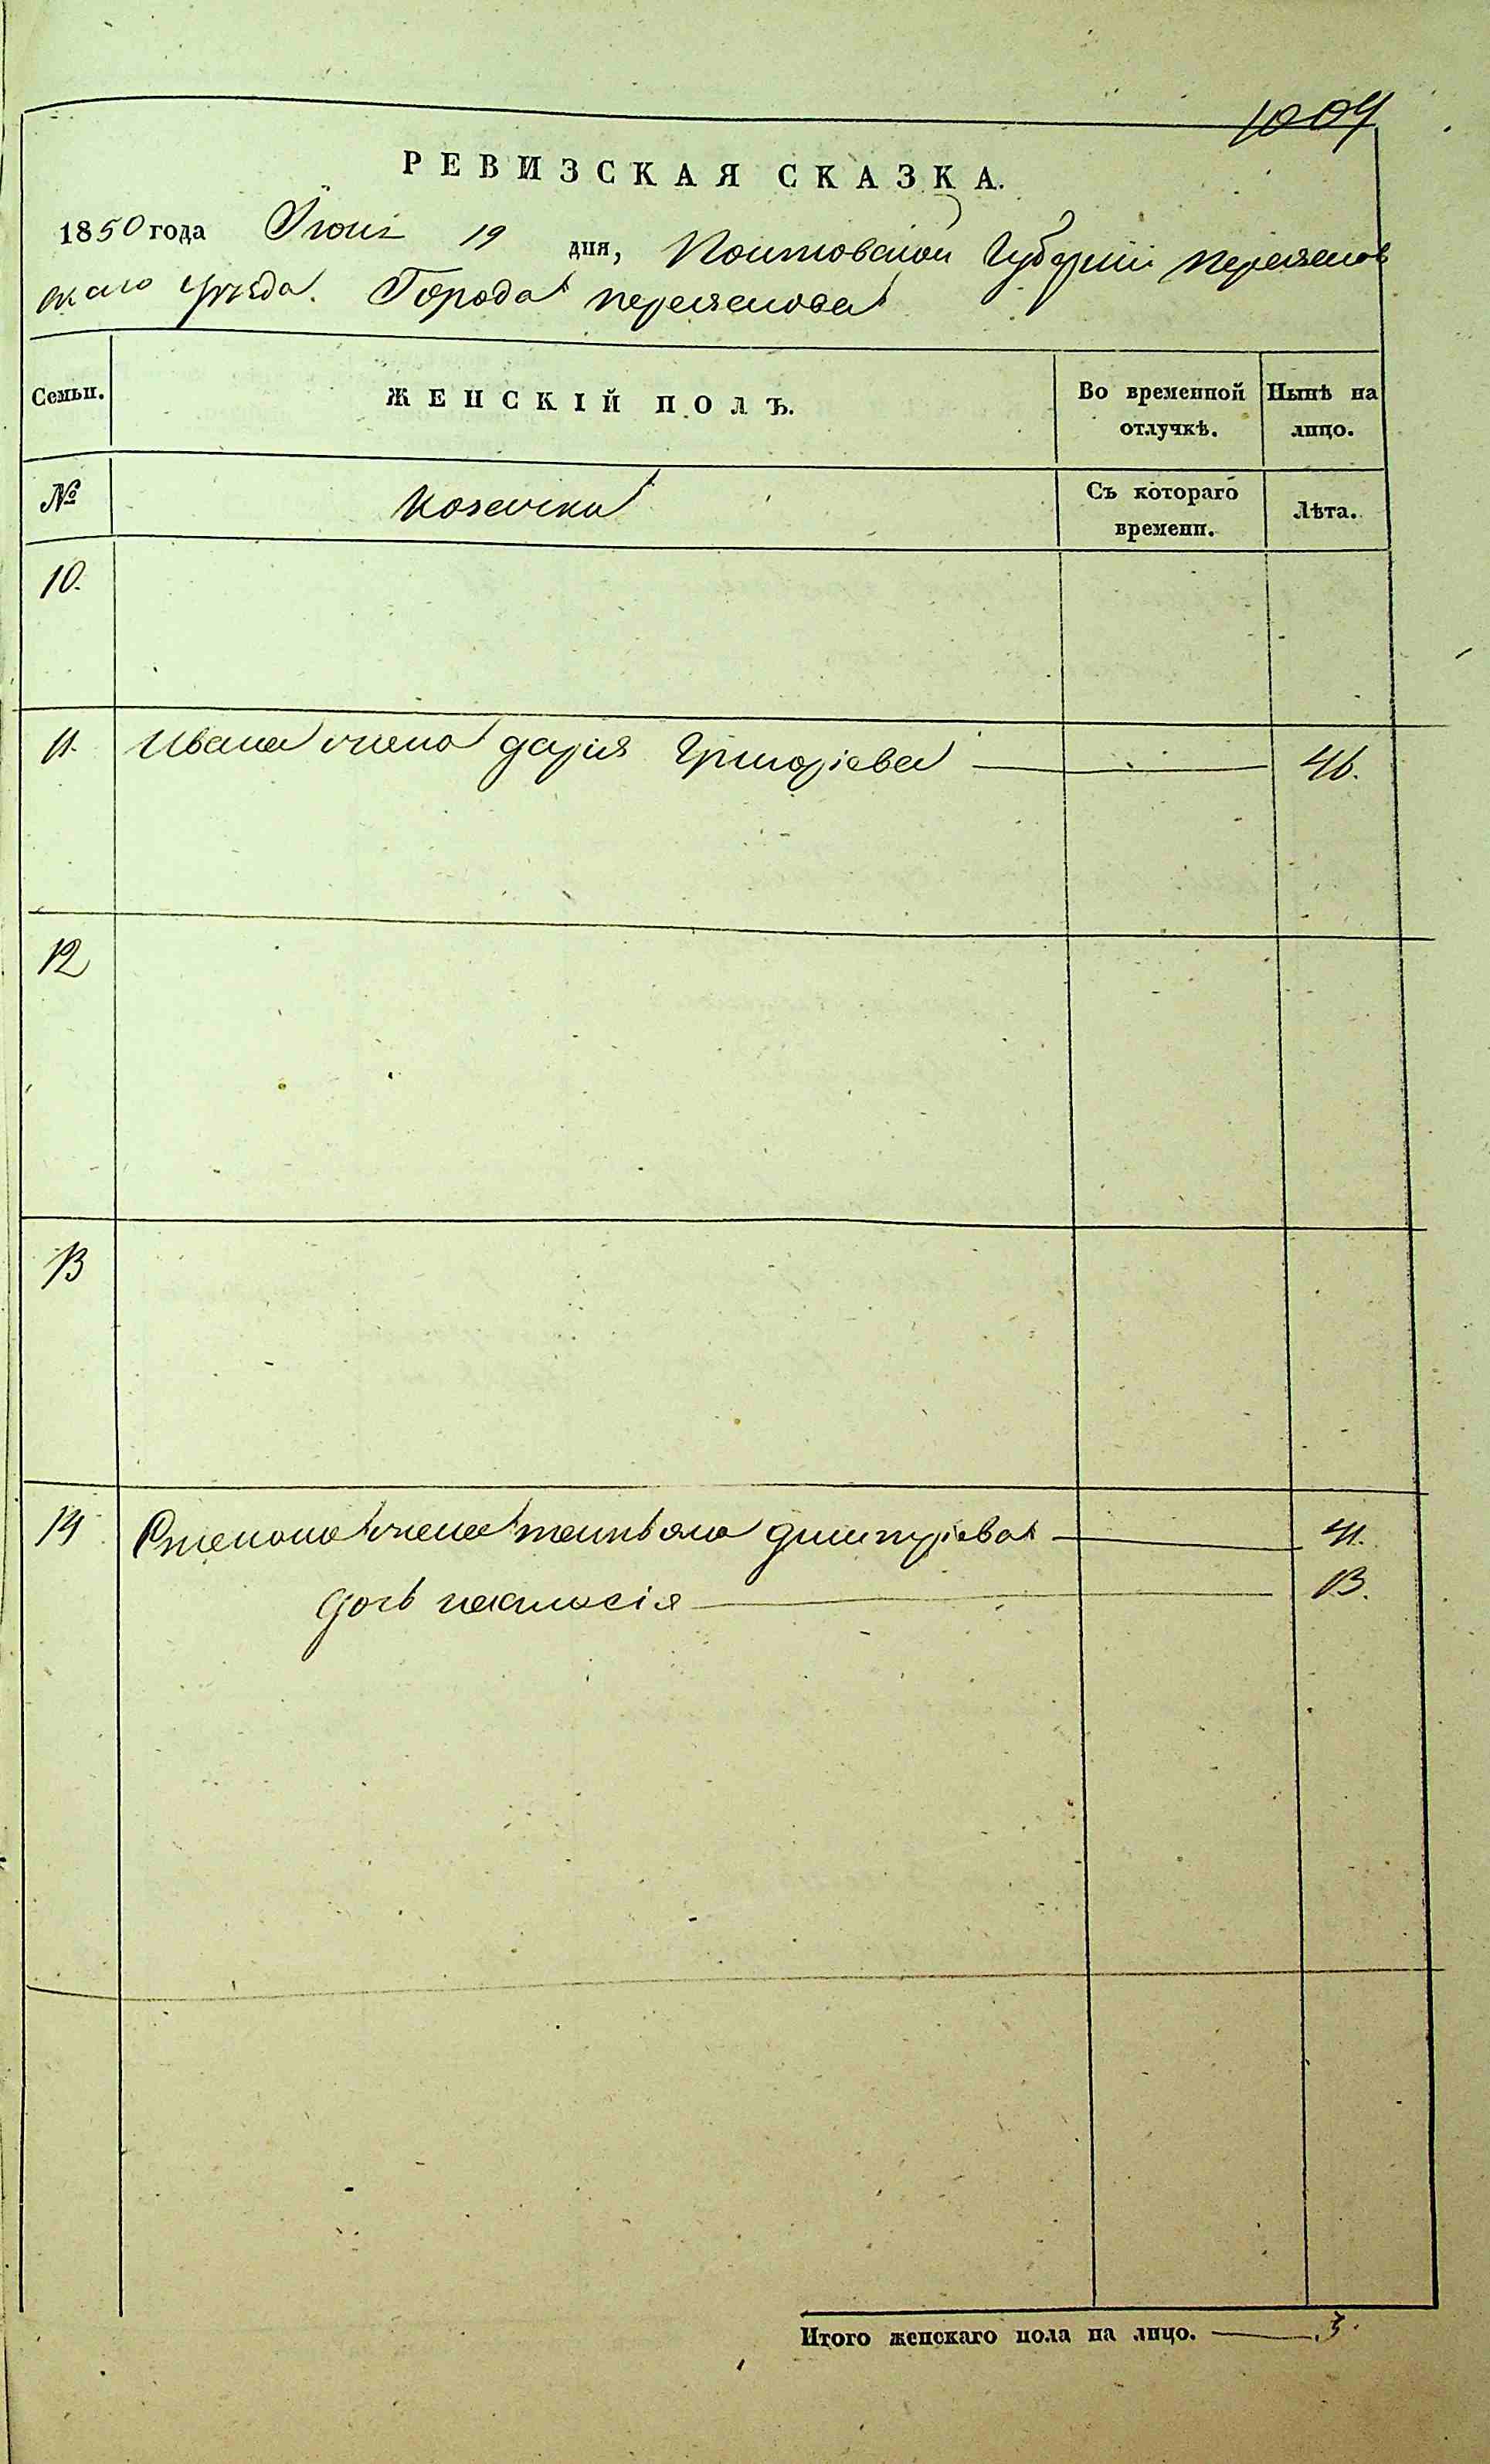 1004
РЕВИЗСКАЯ СКАЗКА.
1850 года Іюня 19 дня, Полтавской Губерніи переяслов
скаго уѣзда. Города переяслова
Семьи. ЖЕНСКІЙ ПОЛЪ. Во временной отлучкѣ. Нынѣ на лицо.
№ Козачки Съ котораго времени. Лѣта.
10.
11. Ивана жена дарія Григоріева 46.
12
13
14 Степана жена татьяна дмитріева 41.
дочь настасія 13.
Итого женскаго пола на лицо. 3.